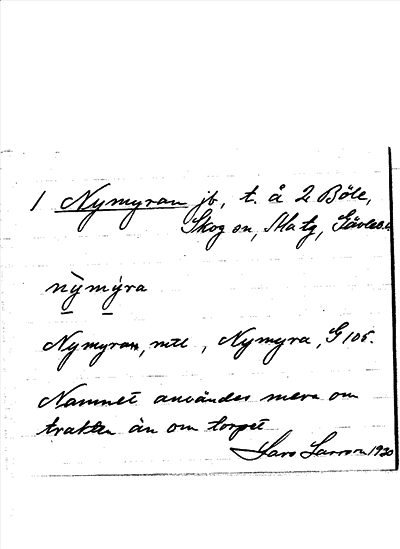 1 Nymyran jb, t. å 2 Böle,
Skog sn, Matg, Gävleb.l.
nỳmýra
Nymyran, mtl, Nymyra, G 105.
Namnet användes mera om
trakten än om torpet
Lars Larsson 1920